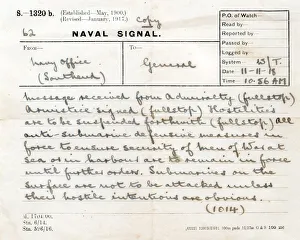 S.—1320 b.
(Established—May, 1900.)
(Revised—January, 1917.)
Copy
62
NAVAL SIGNAL.
P.O. of Watch—
Read by—
Reported by—
Passed by—
Logged by—
System— W/T.
Date— 11-11-18
Time— 10.56 AM
From—
To—
Navy Office
(Southend)
General
Message received from Admiralty (fullstop)
Armistice signed (fullstop) Hostilities
are to be suspended forthwith (fullstop) All
anti-submarine defensive measures in
force to ensure security of men of War at
Sea or in harbour are to remain in force
until further orders. Submarines on the
surface are not to be attacked unless
their hostile intentions are obvious.
(1014)
Sta. 6/14.
Sta. 376/16.